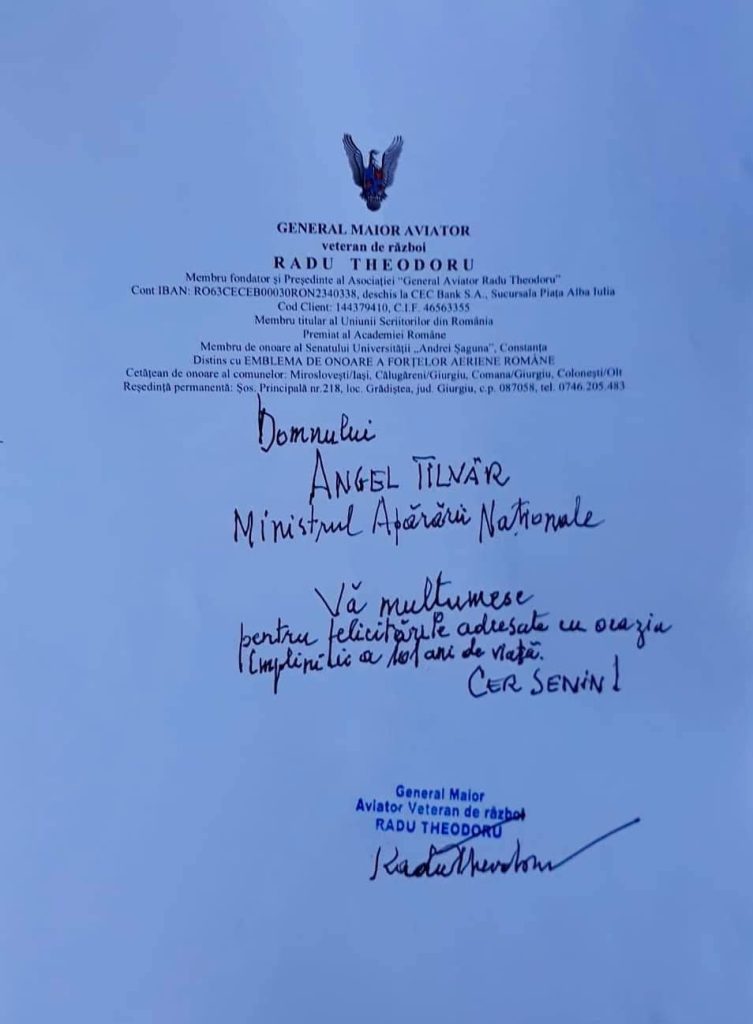 GENERAL MAIOR AVIATOR
veteran de război
RADU THEODORU
Membru fondator și Președinte al Asociației "General Aviator Radu Theodoru"
Cont IBAN: RO63CECEB00030RON2340338, deschis la CEC Bank S.A., Sucursala Piața Alba Iulia
Cod Client: 144379410, C.I.F. 46563355
Membru titular al Uniunii Scriitorilor din România
Premiat al Academiei Române
Membru de onoare al Senatului Universității „Andrei Șaguna", Constanța
Distins cu EMBLEMA DE ONOARE A FORȚELOR AERIENE ROMÂNE
Cetățean de onoare al comunelor: Miroslovești/Iași, Călugăreni/Giurgiu, Comana/Giurgiu, Colonești/Olt
Reședință permanentă: Șos. Principală nr.218, loc. Grădiștea, jud. Giurgiu, c.p. 087058, tel. 0746.205.483
Domnului
ANGEL TÎLVĂR
Ministrul Apărării Naționale
Vă multumesc
pentru felicitările adresate cu ocazia
împlinirii a 101 ani de viață.
CER SENIN!
General Maior
Aviator Veteran de război
RADU THEODORU
Radu Theodoru